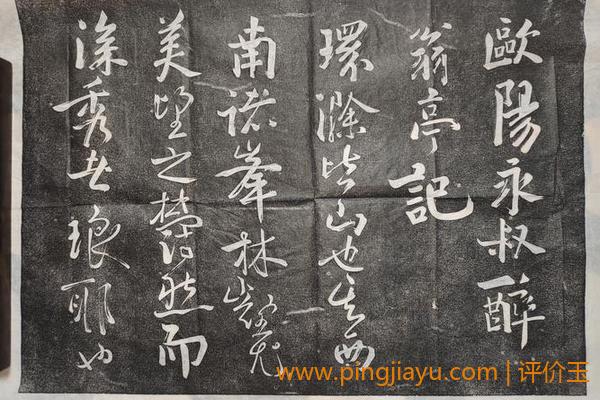 歐陽永叔醉
翁亭記
環滁皆山也其西
南諸峯林壑尤
美望之蔚然而
深秀者琅耶也
www.pingjiayu.com | 评价玉